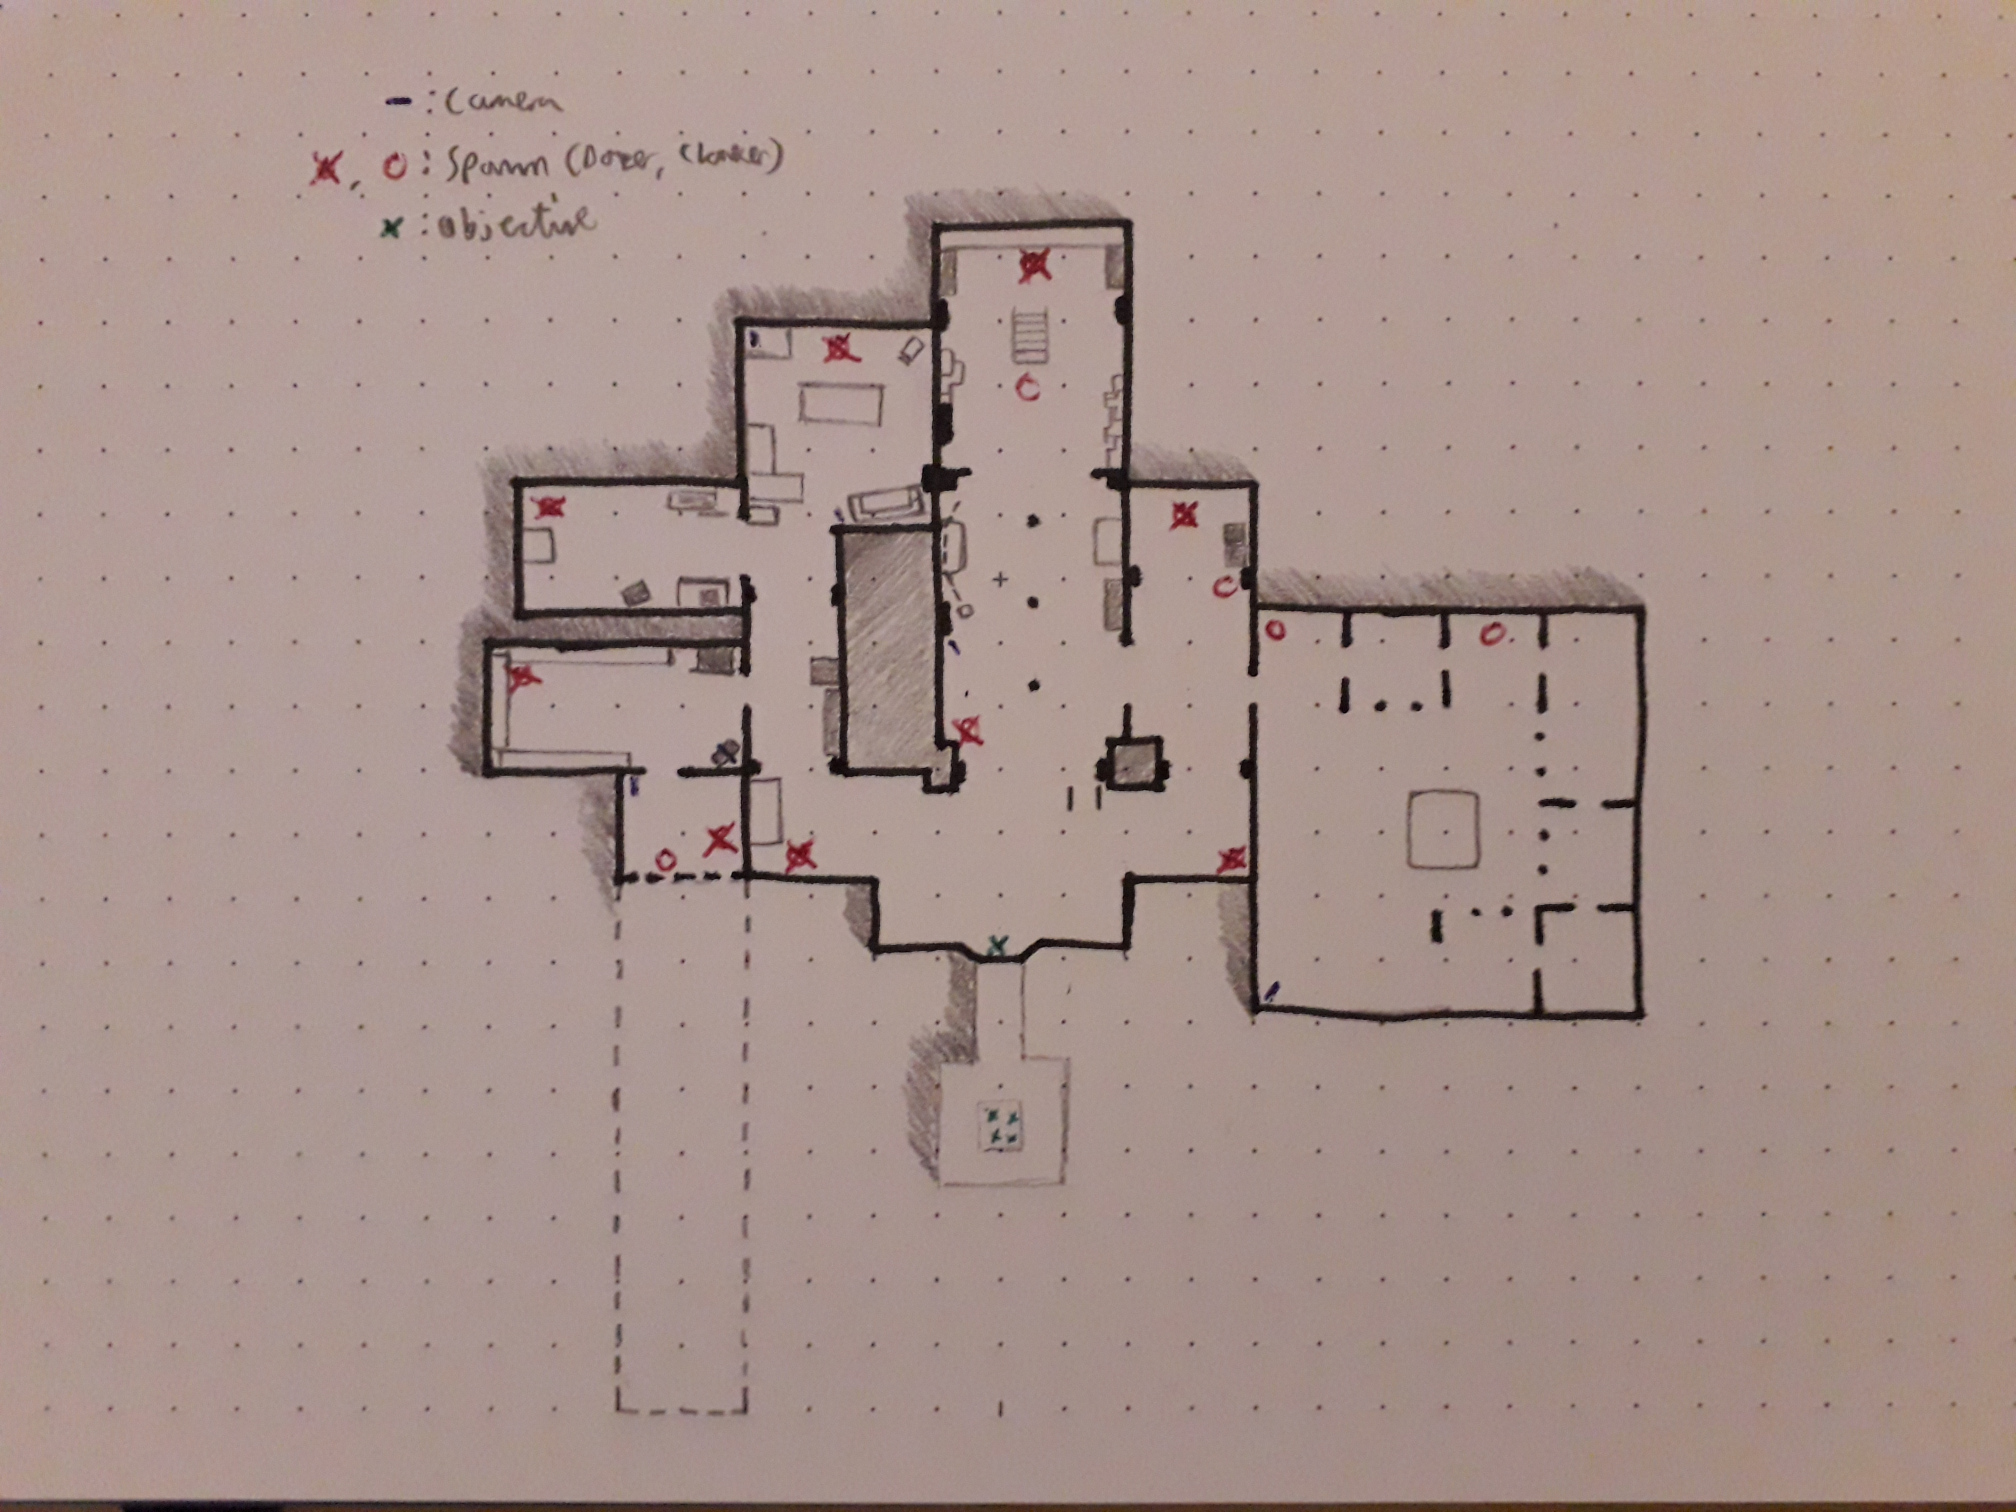 - : Camera
x, o : Spawn (Dozer, Cloaker)
x : Objective